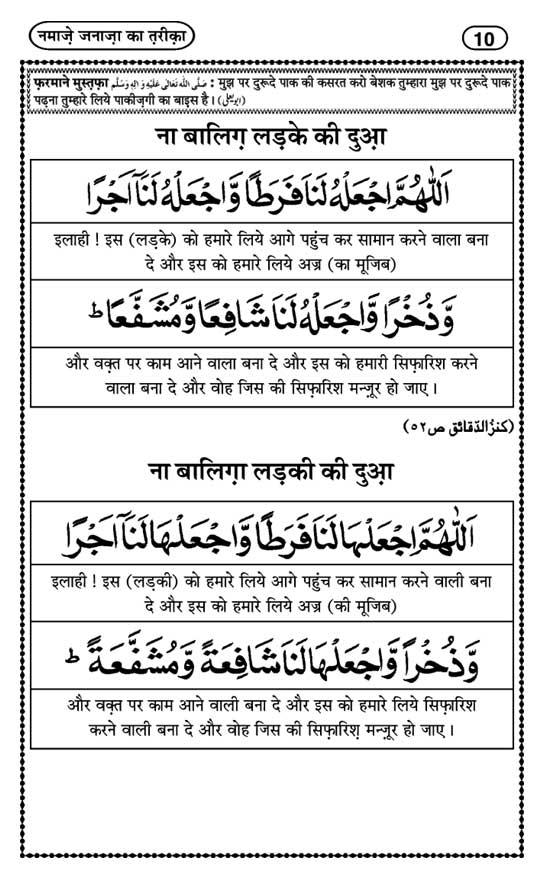 नमाजे़ जनाज़ा का त़रीक़ा
10
फ़रमाने मुस्त़फ़ा صَلَّى اللهُ تَعَالٰى عَلَيْهِ وَاٰلِهٖ وَسَلَّم : मुझ पर दुरूदे पाक की कसरत करो बेशक तुम्हारा मुझ पर दुरूदे पाक
पढ़ना तुम्हारे लिये पाकीज़गी का बाइस है। (ابو يعلى)
ना बालिग़ लड़के की दुआ़
اَللّٰهُمَّ اجْعَلْهُ لَنَا فَرَطًا وَّاجْعَلْهُ لَنَآ اَجْرًا
इलाही ! इस (लड़के) को हमारे लिये आगे पहुंच कर सामान करने वाला बना
दे और इस को हमारे लिये अज्र (का मूजिब)
وَّذُخْرًا وَّاجْعَلْهُ لَنَا شَافِعًا وَّمُشَفَّعًا ؕ
और वक़्त पर काम आने वाला बना दे और इस को हमारी सिफ़ारिश करने
वाला बना दे और वोह जिस की सिफ़ारिश मन्ज़ूर हो जाए।
(كنزُ الدّقائق ص ٥٢)
ना बालिग़ा लड़की की दुआ़
اَللّٰهُمَّ اجْعَلْهَا لَنَا فَرَطًا وَّاجْعَلْهَا لَنَآ اَجْرًا
इलाही ! इस (लड़की) को हमारे लिये आगे पहुंच कर सामान करने वाली बना
दे और इस को हमारे लिये अज्र (की मूजिब)
وَّذُخْرًا وَّاجْعَلْهَا لَنَا شَافِعَةً وَّمُشَفَّعَةً ؕ
और वक़्त पर काम आने वाली बना दे और इस को हमारे लिये सिफ़ारिश
करने वाली बना दे और वोह जिस की सिफ़ारिश़ मन्ज़ूर हो जाए।